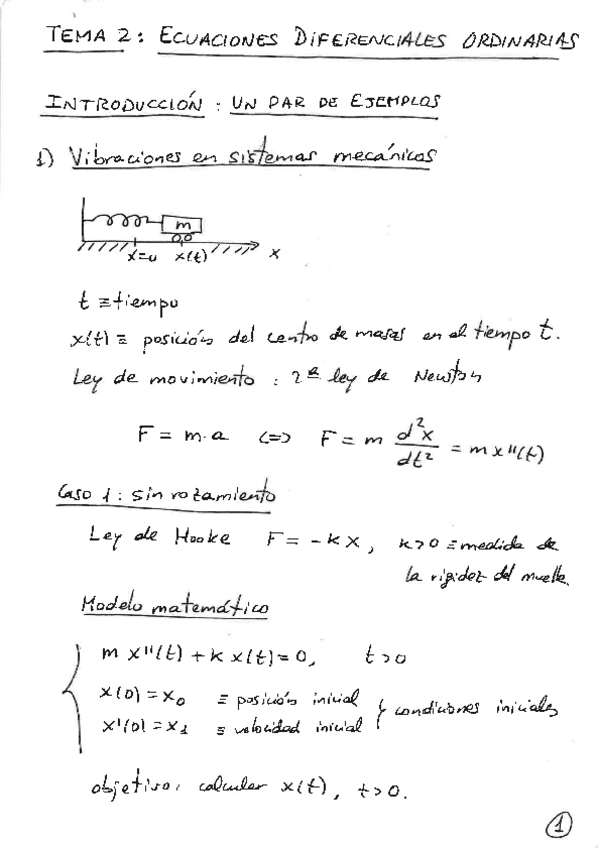 TEMA 2: ECUACIONES DIFERENCIALES ORDINARIAS
INTRODUCCIÓN: UN PAR DE EJEMPLOS
1) Vibraciones en sistemas mecánicos
m
x=0 x(t) x
t ≡ tiempo
x(t) ≡ posición del centro de masas en el tiempo t.
Ley de movimiento: 2ª ley de Newton
F = m·a <=> F = m d²x/dt² = m x''(t)
Caso 1: sin rozamiento
Ley de Hooke F = -k x, k>0 ≡ medida de
la rigidez del muelle.
Modelo matemático
m x''(t) + k x(t) = 0, t>0
x(0) = x₀ ≡ posición inicial
x'(0) = x₁ ≡ velocidad inicial } condiciones iniciales
objetivo: calcular x(t), t>0.
1